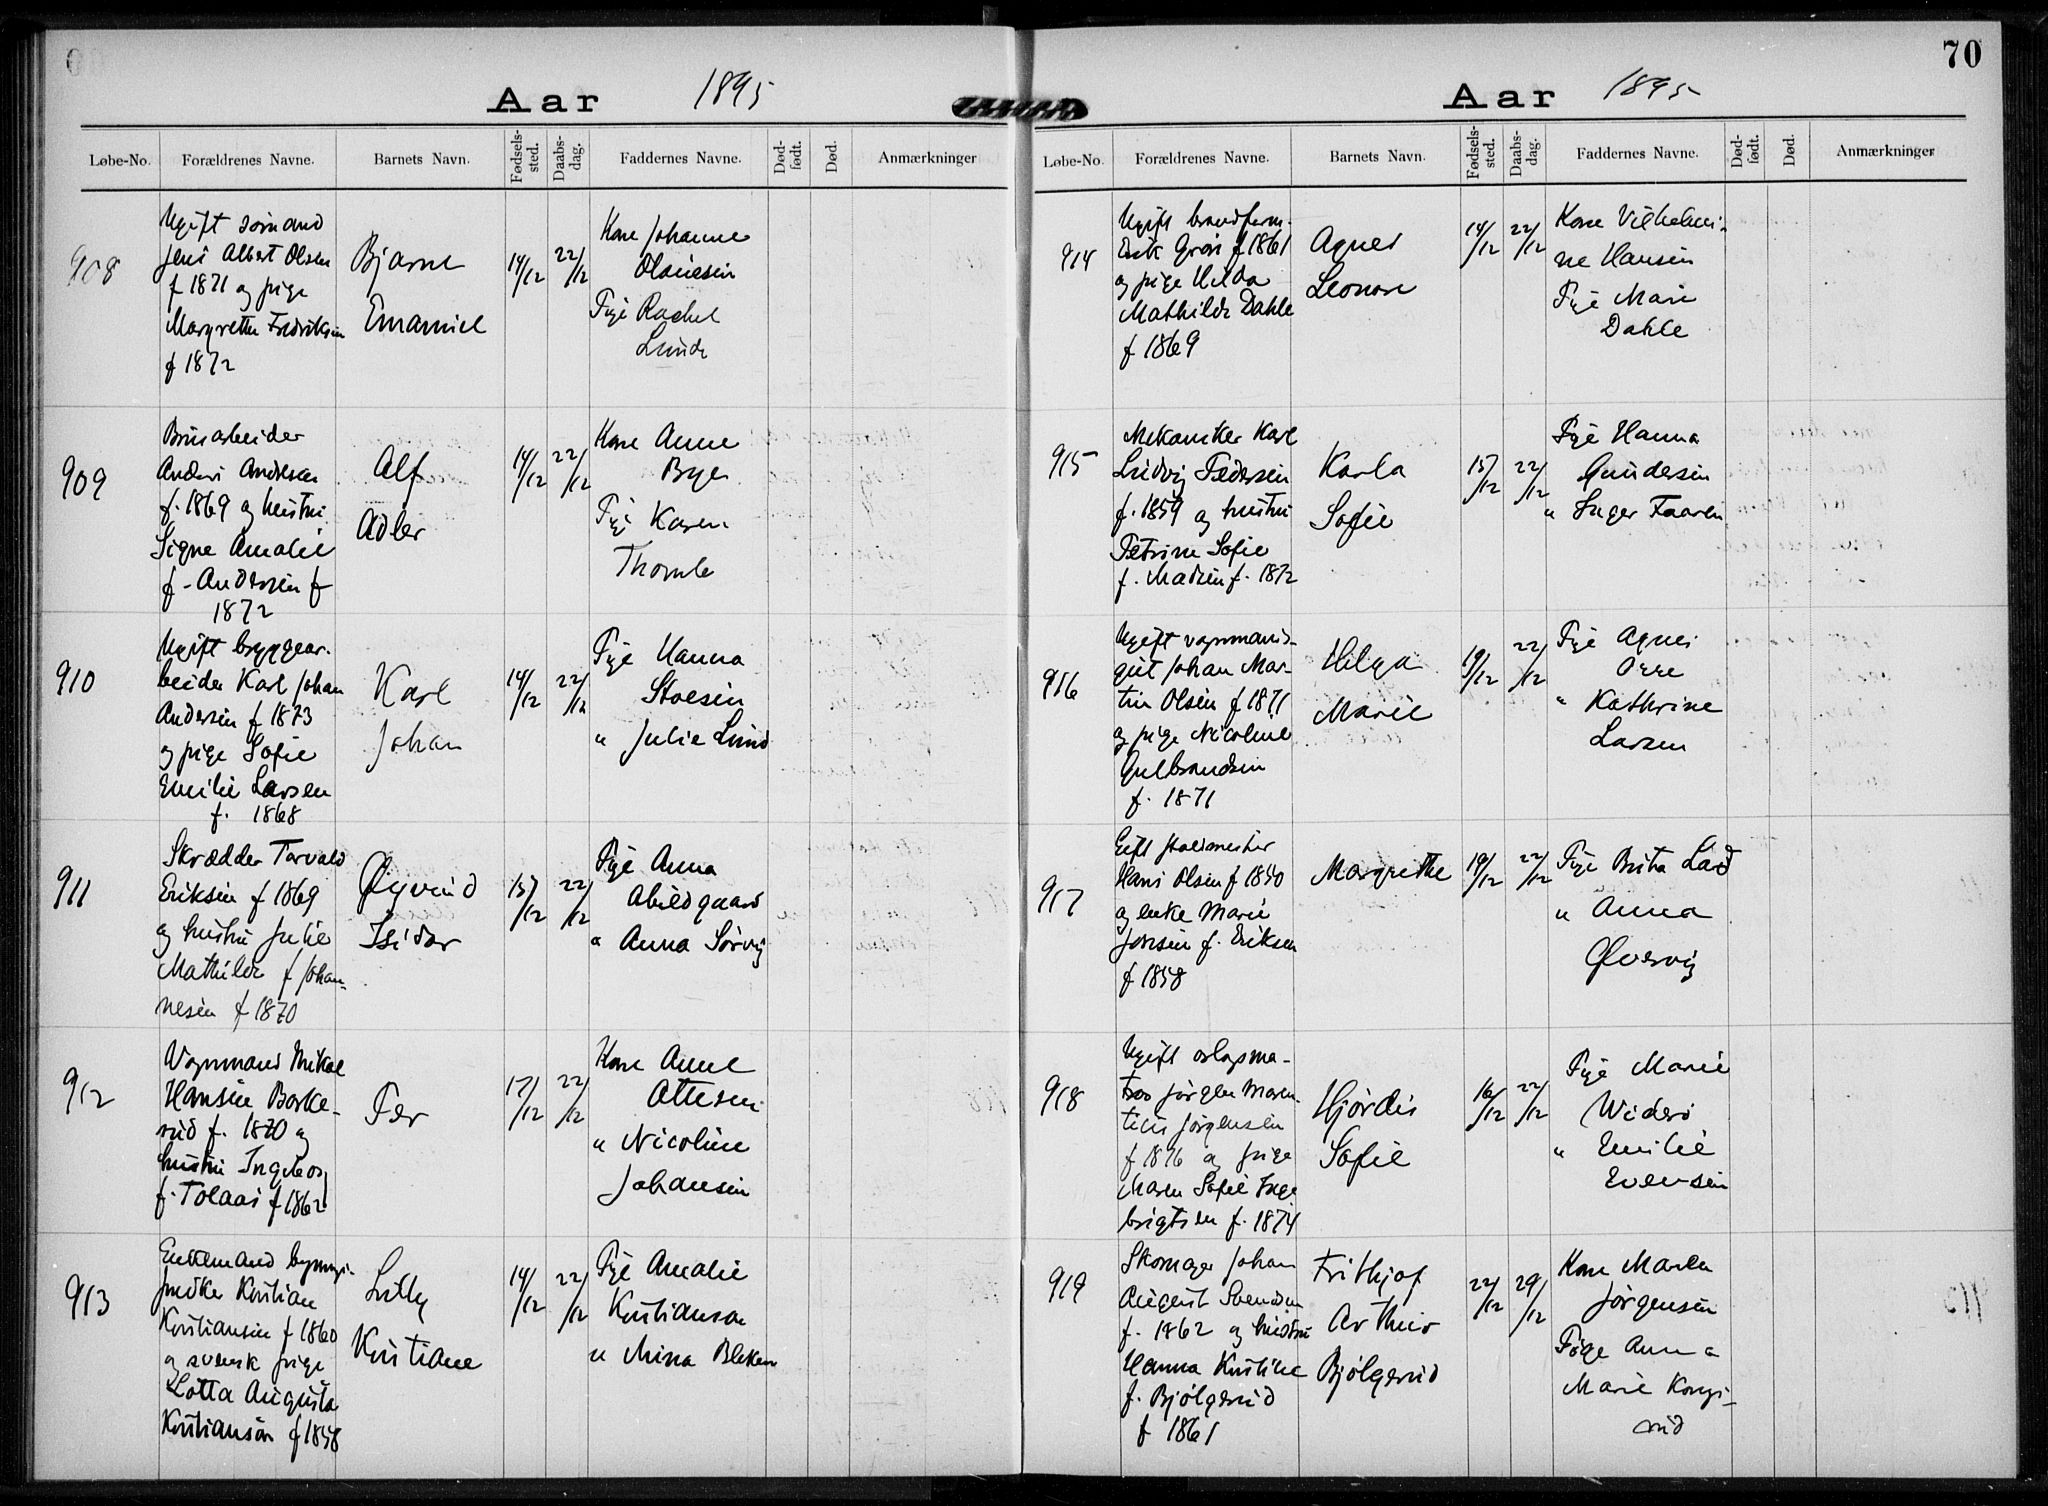 70
Aar 1895
Løbe-No. Forældrenes Navne. Barnets Navn. Fødsels-sted. Daabs-dag. Faddernes Navne. Død-født. Død. Anmærkninger
908
Ugift sømand
Jens Albert Olsen
f 1871 og pige
Margrethe Fredriksen
f 1872
Bjarne
Emanuel
14/12 22/12
Kone Johanne
Olsen
Pige Rachel
Lunde
909
Anders Andersen
f. 1869 og hustru
Signe Amalie
f. Andersen f
1872
Alf
Adler
14/12 22/12
Kone Anne
Bye
Pige Karen
910
Ugift bryggear-
beider Karl Johan
Andersen f 1873
og pige Sofie
Emilie Larsen
f. 1868
Karl
Johan
14/12 22/12
Pige Hanna
" Julie Lund
911
Skrædder Torvald
Eriksen f 1869
og hustru Julie
Mathilde f Johan-
nesen f 1870
Øyvind
Isidor
15/12 22/12
Pige Anna
Abildgaard
" Anna Sørvig
912
Vognmand Mikal
Hansen Borke-
rud f. 1870 og
hustru Ingeborg
f. Tolaas f 1862
Per
17/12 22/12
Kone Anne
Ottesen
" Nicoline
Johansen
913
Enkemand bygnings-
snedker Kristian
Kristiansen f 1860
og svensk pige
Lotta Augusta
Kristiansøn f 1858
Lilly
Kristiane
14/12 22/12
Pige Amalie
Kristianson
" Mina Bleken
Aar 1895
Løbe-No. Forældrenes Navne. Barnets Navn. Fødsels-sted. Daabs-dag. Faddernes Navne. Død-født. Død. Anmærkninger
914
Ugift
Erik f 1861
og pige Hilda
Mathilde Dahle
f 1869
Agnes
Leonore
14/12 22/12
Kone Vilhelmi-
ne Hansen
Pige Marie
Dahle
915
Mekaniker Karl
Ludvig Pedersen
f. 1859 og hustru
Petrine Sofie
f. Madsen f. 1872
Karla
Sofie
15/12 22/12
Pige Hanna
Gundersen
" Inger Faaren
916
Ugift vognmands-
gut Johan Mar-
tin Olsen f 1871
og pige Nicoline
Gulbrandsen
f. 1871
Helga
Marie
19/12 22/12
Pige Agnes
Orre
" Kathrine
Larsen
917
Gift staldmester
Hans Olsen f 1850
og enke Marie
Jonsen f. Eriksen
f 1858
Margrethe
19/12 22/12
Pige Brita Lad
" Anna
Øvervig
918
Ugift orlogsma-
tros Jørgen Maren-
tius Jørgensen
f 1876 og pige
Maren Sofie Inge
brigtsen f. 1874
Hjørdis
Sofie
16/12 22/12
Pige Marie
Widerø
" Emilie
Evensen
919
Skomager Johan
August Svendsen
f. 1862 og hustru
Hanna Kristine
f. Bjølgerud
f 1861
Frithjof
Arthur
Bjølgerud
22/12 29/12
Kone Maren
Jørgensen
Pige Anna
Marie Kongs-
rud